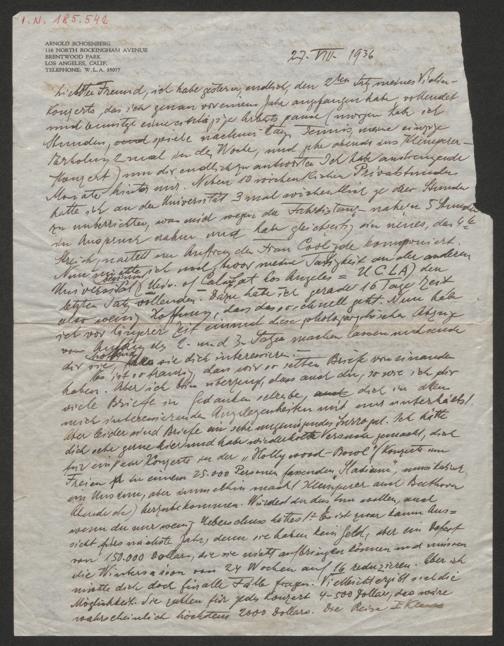 I.N. 185.542
ARNOLD SCHOENBERG
116 NORTH ROCKINGHAM AVENUE
BRENTWOOD PARK
LOS ANGELES, CALIF.
TELEPHONE: W.L.A. 35077
27. VIII. 1936
Liebster Freund, ich habe gestern, endlich, den 2ten Satz meines Violin-
konzerts, das ich genau vor einem Jahr angefangen habe, vollendet
und benutze eine arbeitspause (morgen habe ich
Stunden, und spiele nachmittag Tennis, meine einzige
Erholung 2 mal in der Woche, und abends ins Klemperer-
Konzert) um dir endlich zu antworten. Ich habe anstrengende
Monate hinter mir. Neben 10 wöchentlichen Privatstunden
hatte ich an der Universität 3 mal wöchentlich je Stunden
zu unterrichten, was mich wegen der Fahrdistanz nahezu 5 Stunden
in Anspruch nahm und habe gleichzeitig ein neues, das 4te
Streichquartett im Auftrag der Frau Coolidge komponiert.
Nun ich und bevor meine Tätigkeit an der anderen
Universität (Univ. of Calif. at Los Angeles = UCLA) den
letzten Satz vollenden. Dazu habe ich gerade 16 Tage Zeit
also wenig Hoffnung, dass das so schnell geht. Nun habe
ich vor längerer Zeit einmal diese photographische Abzüge
vom Anfang des 1. und 3. Satzes machen lassen und sende
dir sie, hoffend, sie dich interessieren.
Es ist so traurig, dass wir so selten Briefe von einander
haben. Aber ich bin überzeugt, dass auch du, so wie ich dir
viele Briefe in Gedanken schreibe, dich in allen
mich interessierenden Angelegenheiten mit mir unterhältst.
Aber leider sind Briefe ein sehr ungenügendes Surrogat. Ich hätte
dich sehr gerne hier und habe wiederholte Versuche gemacht, dich
für ein paar Konzerte in der „Hollywood-Bowl" (Konzerte im
Freien in einem 25.000 Personen fassenden „Stadium",
aber immerhin macht Klemperer auch Beethoven
) herzubekommen. Würdest du das tun wollen, auch
wenn du nur wenig Ueberschuss hättest? Es ist zwar kaum Aus-
sicht fürs nächste Jahr, denn sie haben kein Geld, aber ein Defizit
von 150.000 Dollars, die sie nicht aufbringen können und müssen
die Wintersaison von 24 Wochen auf 16 reduzieren. Aber ich
möchte dich doch für alle Fälle fragen. Vielleicht ergibt sich die
Möglichkeit. Sie zahlen für jedes Konzert 4-500 Dollars, das wäre
wahrscheinlich höchstens 2000 Dollars. Die Reise I Klasse